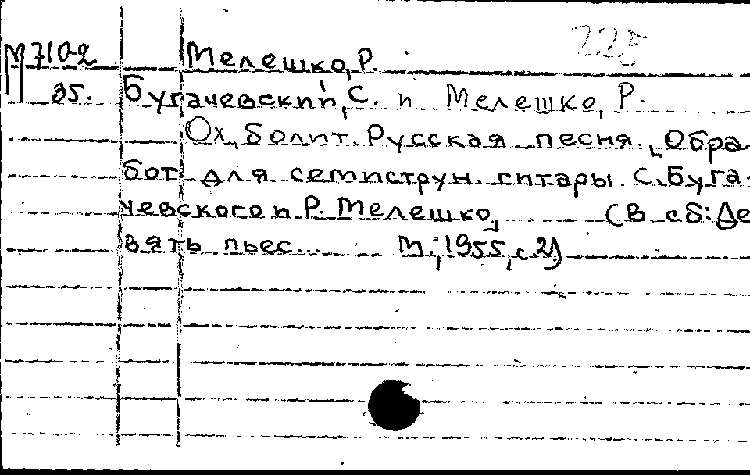 М 7102 Мелешко, Р. 225
35. Бугачевский, С. и Мелешко, Р.
Ох, болит. Русская песня. [Обра-
бот. для семиструн. гитары С. Буга-
чевского и Р. Мелешко] (В сб: Де-
вять пьес... М., 1955, с. 2)